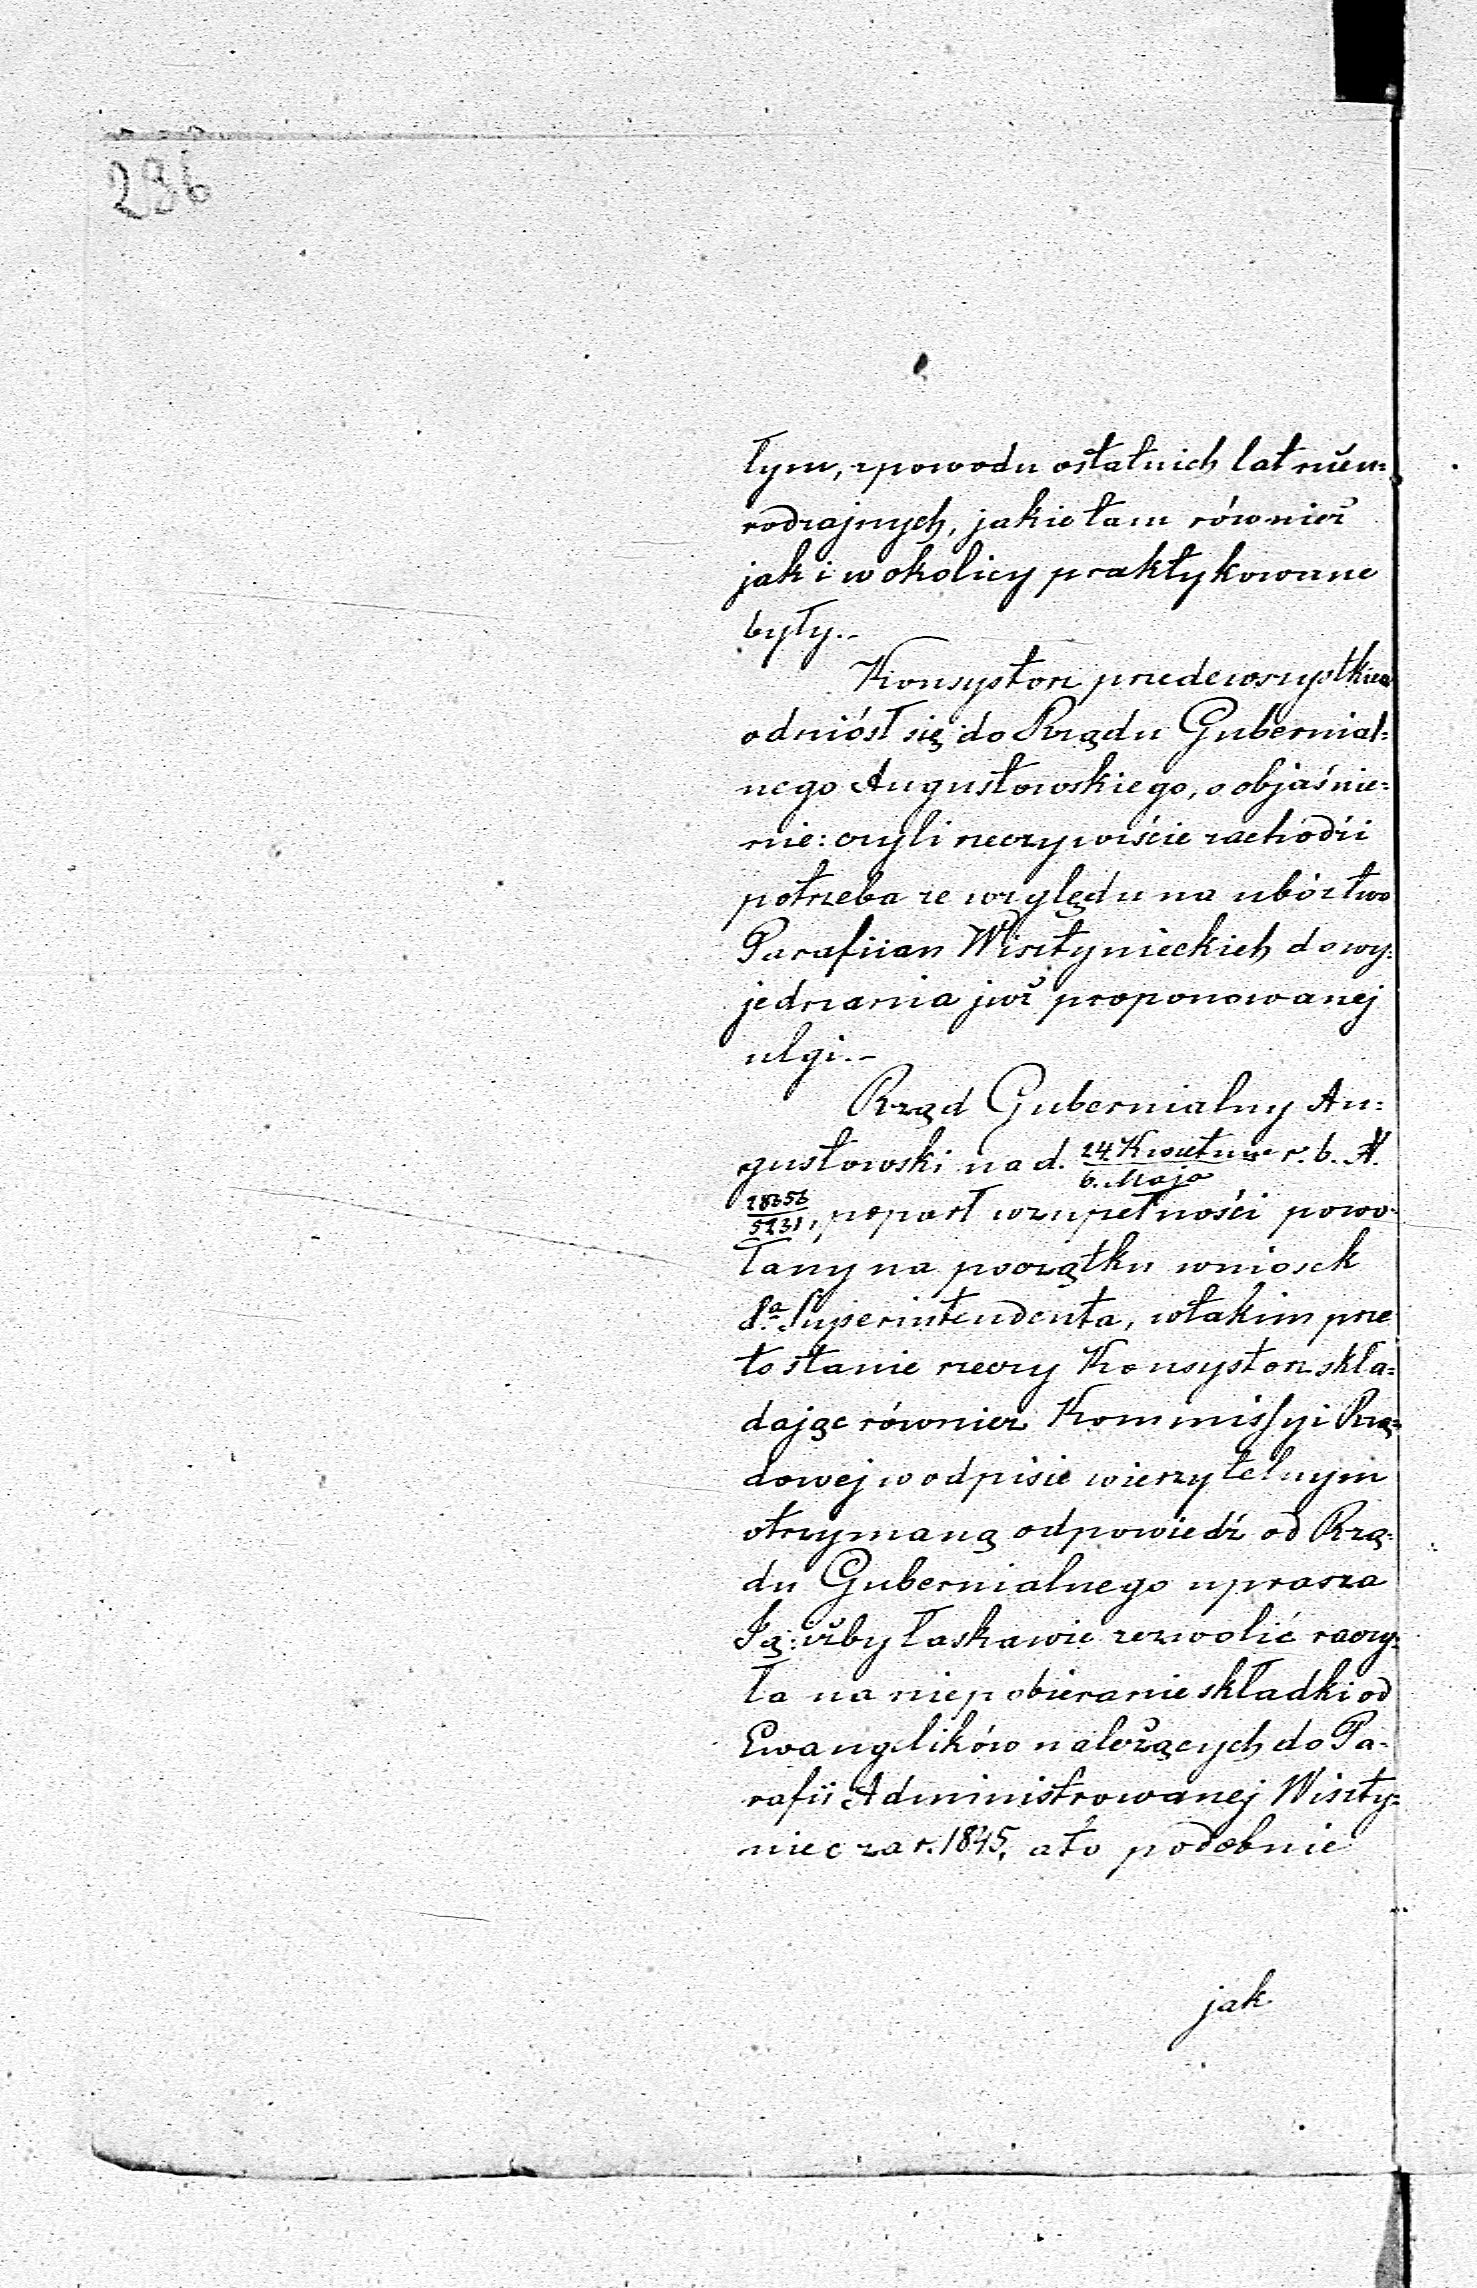 236
łym, z powodu ostatnich lat nieu=
rodzajnych, jakie tam również
jak i w okolicy praktykowane
były.-
Konsystorz przedewszystkiem
odniósł się do Rządu Gubernial=
nego Augustowskiego, o objaśnie=
nie: czyli rzeczywiście zachodzi
potrzeba ze względu na ubóztwo
Parafiian Wisztynieckich do wy=
jednania już proponowanej
ulgi.-
Rząd Gubernialny Au=
gustowski na d. 24 Kwietnia/6. Maja r. b. N.
28656/5231, poparł w zupełności powo=
łany na początku wniosek
Sa. Superintendenta, w takim prze
to stanie rzeczy Konsystorz skła=
dając również Kommissyi Rzą=
dowej w odpisie wierzytelnym
otrzymaną odpowiedź od Rzą=
du Gubernialnego uprasza
Ją: iżby łaskawie zezwolić raczy=
ła na niepobieranie składki od
Ewangelików należących do Pa=
rafii Administrowanej Wiszty=
niec za r. 1845, a to podobnie
jak